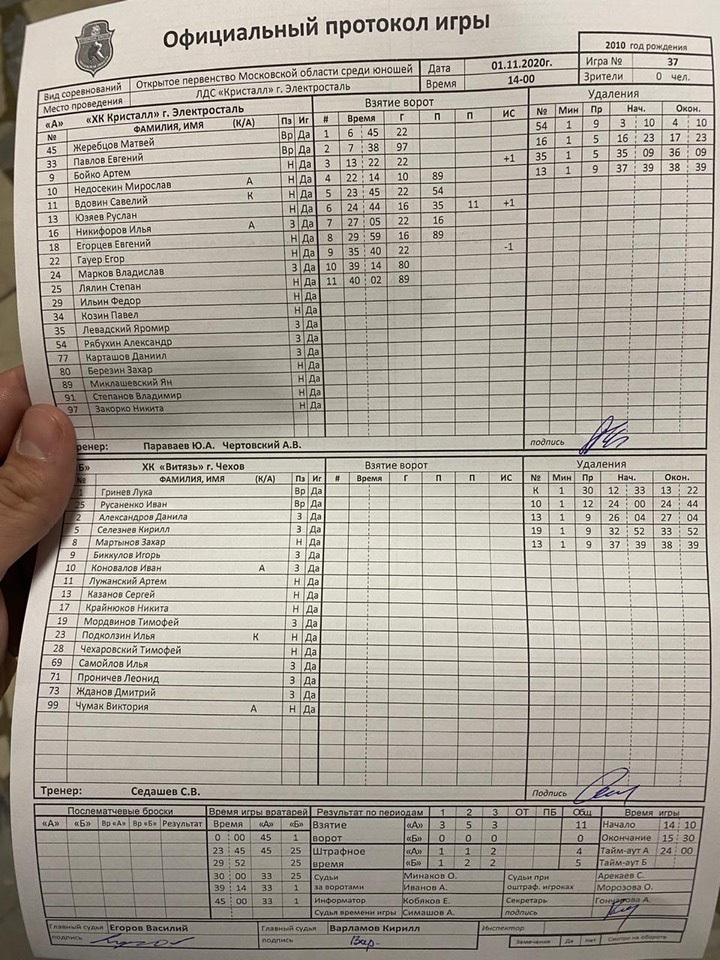 Официальный протокол игры
2010 год рождения
Вид соревнований Открытое первенство Московской области среди юношей Дата 01.11.2020г. Игра № 37
Место проведения ЛДС «Кристалл» г. Электросталь Время 14-00 Зрители 0 чел.
«А» «ХК Кристалл» г. Электросталь Взятие ворот Удаления
№ ФАМИЛИЯ, ИМЯ (К/А) Пз Иг # Время Г П П ИС № Мин Пр Нач. Окон.
45 Жеребцов Матвей Вр Да 1 6 45 22 54 1 9 3 10 4 10
33 Павлов Евгений Вр Да 2 7 38 97 16 1 5 16 23 17 23
9 Бойко Артем Н Да 3 13 22 22 +1 35 1 5 35 09 36 09
10 Недосекин Мирослав А Н Да 4 22 14 10 89 13 1 9 37 39 38 39
11 Вдовин Савелий К Н Да 5 23 45 22 54
13 Юзяев Руслан Н Да 6 24 44 16 35 11 +1
16 Никифоров Илья А З Да 7 27 05 22 16
18 Егорцев Евгений Н Да 8 29 59 16 89
22 Гауер Егор Н Да 9 35 40 22 -1
24 Марков Владислав З Да 10 39 14 80
25 Лялин Степан Н Да 11 40 02 89
29 Ильин Федор Н Да
34 Козин Павел Н Да
35 Левадский Яромир З Да
54 Рябухин Александр З Да
77 Карташов Даниил З Да
80 Березин Захар Н Да
89 Миклашевский Ян Н Да
91 Степанов Владимир Н Да
97 Закорко Никита Н Да
тренер: Параваев Ю.А. Чертовский А.В. подпись
Б» ХК «Витязь» г. Чехов Взятие ворот Удаления
№ ФАМИЛИЯ, ИМЯ (К/А) Пз Иг # Время Г П П ИС № Мин Пр Нач. Окон.
1 Гринев Лука Вр Да К 1 30 12 33 13 22
25 Русаненко Иван Вр Да 10 1 12 24 00 24 44
2 Александров Данила З Да 13 1 9 26 04 27 04
5 Селезнев Кирилл З Да 19 1 9 32 52 33 52
8 Мартынов Захар Н Да 13 1 9 37 39 38 39
9 Биккулов Игорь З Да
10 Коновалов Иван А З Да
11 Лужанский Артем Н Да
13 Казанов Сергей Н Да
17 Крайнюков Никита Н Да
19 Мордвинов Тимофей З Да
23 Подколзин Илья К Н Да
28 Чехаровский Тимофей Н Да
69 Самойлов Илья З Да
71 Проничев Леонид З Да
73 Жданов Дмитрий З Да
99 Чумак Виктория А Н Да
Тренер: Седашев С.В. Подпись
Послематчевые броски Время игры вратарей Результат по периодам 1 2 3 ОТ ПБ Общ Время игры
«А» «Б» Вр «А» Вр «Б» Результат Время «А» «Б» Взятие «А» 3 5 3 11 Начало 14 10
0 00 45 1 ворот «Б» 0 0 0 0 Окончание 15 30
23 45 45 25 Штрафное «А» 1 1 2 4 Тайм-аут А 24 00
29 52 25 время «Б» 1 2 2 5 Тайм-аут Б
30 00 33 25 Судьи Минаков О. Судьи при Арекаев С.
39 14 33 1 за воротами Иванов А. оштраф. игроках Морозова О.
45 00 33 1 Информатор Кобяков Е. Секретарь Гончарова А.
Судья времени игры Симашов А. подпись
Главный судья Егоров Василий Главный судья Варламов Кирилл Инспектор
подпись подпись Замечания Да Нет Смотри на обороте